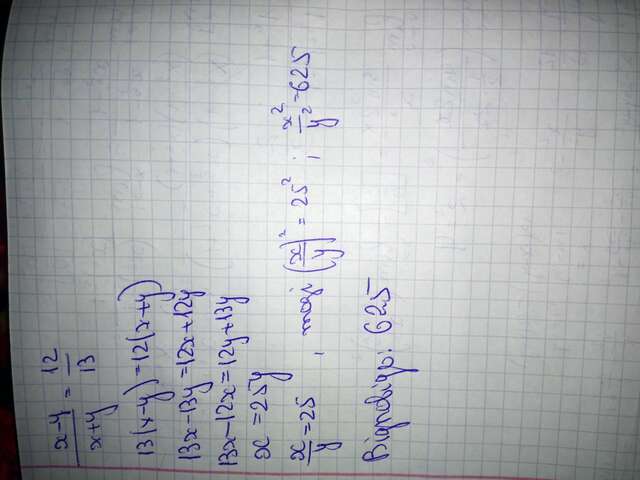 x-y/x+y = 12/13
13(x-y) = 12(x+y)
13x-13y = 12x+12y
13x-12x = 12y+13y
x = 25y
x/y = 25, тоді (x/y)² = 25² ; x²/y² = 625
Відповідь: 625